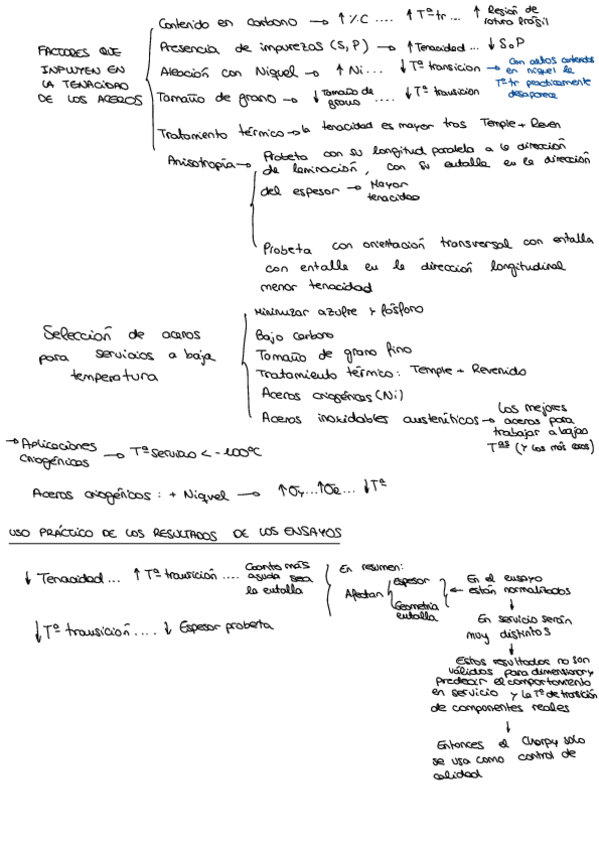 FACTORES QUE
INFLUYEN EN
LA TENACIDAD
DE LOS ACEROS
Contenido en carbono → ↑ %C .... ↑ Tª tr... ↑ Región de
rotura frágil
Presencia de impurezas (S, P) → ↑ Tenacidad ... ↓ S o P
Aleación con Niquel → ↑ Ni... ↓ Tª transicion → Con altos contenidos
en niquel la
Tª tr practicamente
desaparece
Tamaño de grano → ↓ Tamaño de
grano .... ↓ Tª transicion
Tratamiento térmico → la tenacidad es mayor tras Temple + Reven
Anisotropía → Probeta con su longitud paralela a la dirección
de laminación, con su entalla en la dirección
del espesor → Mayor
tenacidad
Probeta con orientación transversal con entalla
con entalle en la dirección longitudinal
menor tenacidad
Selección de aceros
para servicios a baja
temperatura
Minimizar azufre y fósforo
Bajo carbono
Tamaño de grano fino
Tratamiento térmico: Temple + Revenido
Aceros criogénicos (Ni)
Aceros inoxidables austeníticos → Los mejores
aceros para
trabajar a bajas
Tªs (y los más caros)
→ Aplicaciones
criogénicas → Tª servicio < -100ºC
Aceros criogénicos : + Niquel → ↑ σy ... ↑ σR ... ↓ Tª
USO PRÁCTICO DE LOS RESULTADOS DE LOS ENSAYOS
↓ Tenacidad ... ↑ Tª transición .... Cuanto más
aguda sea
la entalla
↓ Tª transición .... ↓ Espesor probeta
En resumen:
Afectan
Espesor
Geometria
entalla
← En el ensayo
están normalizados
↓
En servicio serán
muy distintos
↓
Estos resultados no son
válidos para dimensionar y
predecir el comportamiento
en servicio y la Tª de transición
de componentes reales
↓
Entonces el Charpy solo
se usa como control de
calidad